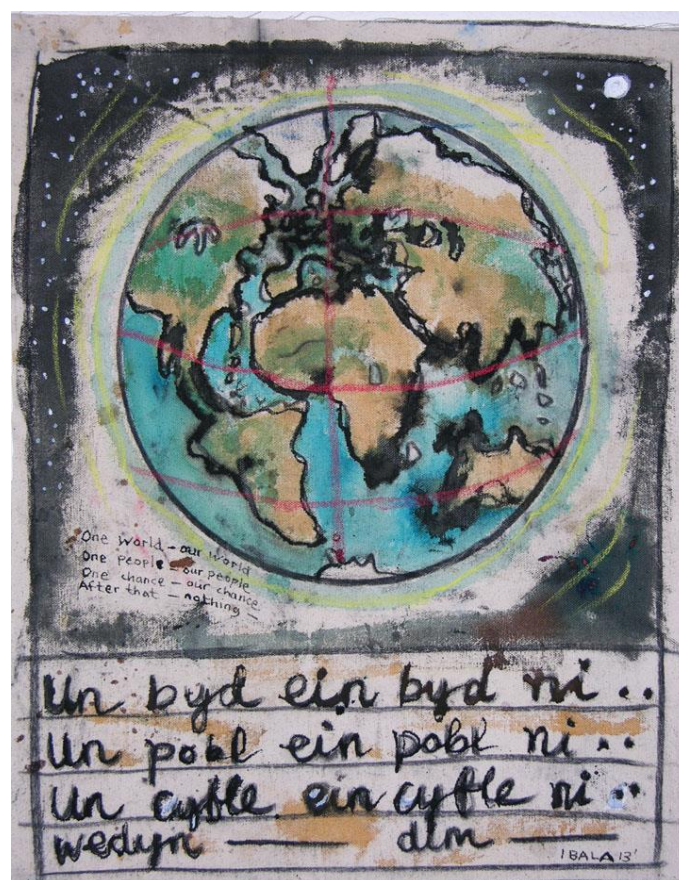 One World – our World
One people – our people
One chance – our chance
After that – nothing –
Un byd ein byd ni ..
Un pobl ein pobl ni ..
Un cyfle ein cyfle ni ..
wedyn — dim —
'BALA 13'